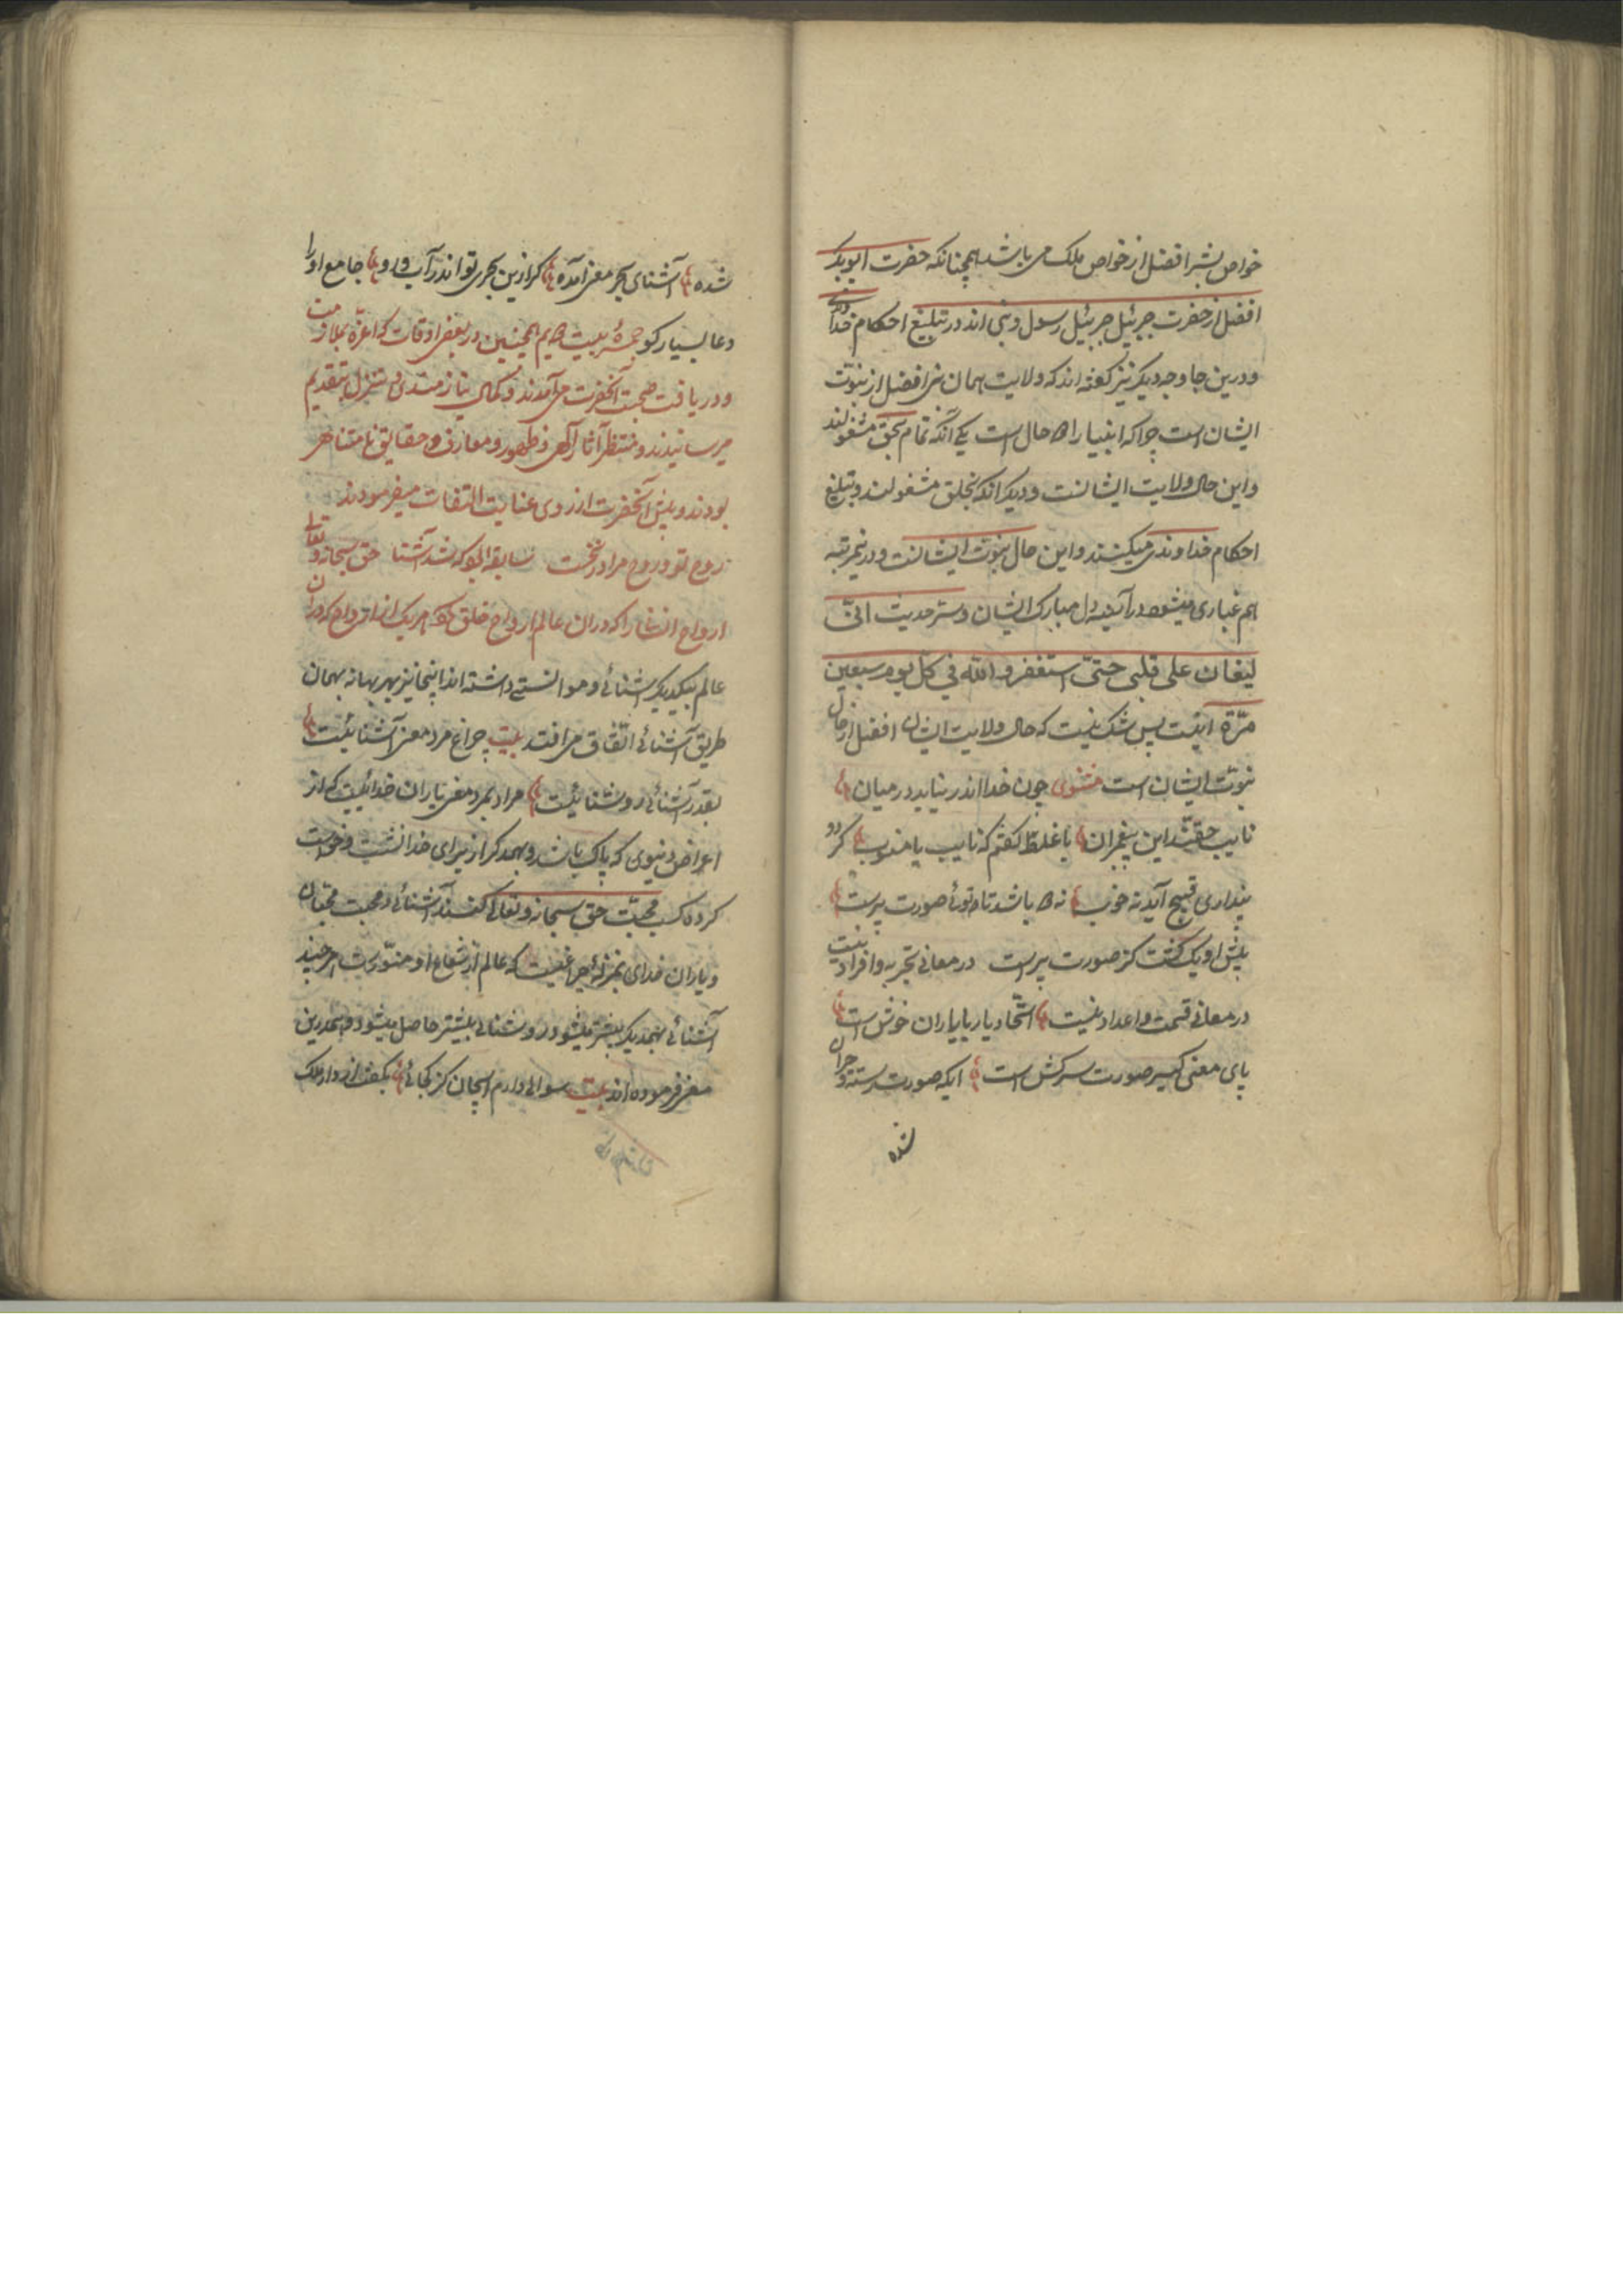 خواص بشر افضل از خواص ملک می باشد همچنانکه حضرت ابوبکر
افضل از حضرت جبرئیل جبرئیل رسول و نبی اند در تبلیغ احکام خداوندی
و درین جا وجه دیگر نیز گفته اند که ولایت همان نبی افضل از نبوت
ایشان است چرا که انبیا را دو حال است یکی آنکه تمام بحق مشغولند
و این حال ولایت ایشانست و دیگر آنکه بخلق مشغولند و تبلیغ
احکام خداوندی میکنند و این حال نبوت ایشانست و درینمرتبه
هم غباری میشود در آیینه دل مبارک ایشان و سر حدیث انّی
لیغان علی قلبی حتّی استغفر و الله فی کل یوم سبعین
مرّة اینست پس شک نیست که حال ولایت ایشان افضل از حال
نبوت ایشان است مثنوی چون خدا اندر نیاید در میان
نایب حقند این پیغمبران یا غلط گفتم که نایب یا منوب گر دو
پنداری قبیح آید نه خوب نه دو باشد تا توئی صورت پرست
پیش او یک گشت کز صورت برست در معانی تجزیه و افراد نیست
در معانی قسمت و اعداد نیست اتّحاد یار با یاران خوش است
پای معنی گیر صورت سرکش است ایکه صورت رسته و حیران
شده
شده آشنای بحر معنی آمده گر ازین بحری تو اندر آب رو جامع او را
دعا بسیار گو جمیزه بیت دویم همچنین در بعضی اوقات که اعزّه بملازمت
و دریافت صحبت آنحضرت می آمدند و کمال نیازمندی و تنزل بتقدیم
میرسانیدند و منتظر آثار آگهی و ظهور و معارف و حقایق نامتناهی
بودند و پیش آنحضرت از روی عنایت التفات میفرمودند
روح تو و روح مرا در نخست سابقه بود که شد آشنا حق سبحانه و تعالی
ارواح انسانرا که در ان عالم ارواح خلق کرد هر یک از ارواح که در ان
عالم بیکدیگر آشنائی و موانستی داشته اند اینجا نیز بهر بهانه بهمان
طریق آشنائی اتّفاق می افتد بیت چراغ مرد معنی آشنائیست
بقدر آشنائی روشنائیست مراد بمرد معنی یاران خدائیست که از
اعراض دنیوی که پاک باشد و بهمدگر از برای خدا نشست و خواست
کرده کسب محبّت حق سبحانه و تعالی کنند آشنائی و محبت محبّان
و یاران خدای بمنزلهٔ چراغیست که عالم از شعاع او منوّر است هر چند
آشنائی بهمدیگر بیشتر میشود روشنائی بیشتر حاصل میشود و همدرین
معنی فرموده اند بیت سوالی دارم ای جان کز کجائی بگفت از دار ملک